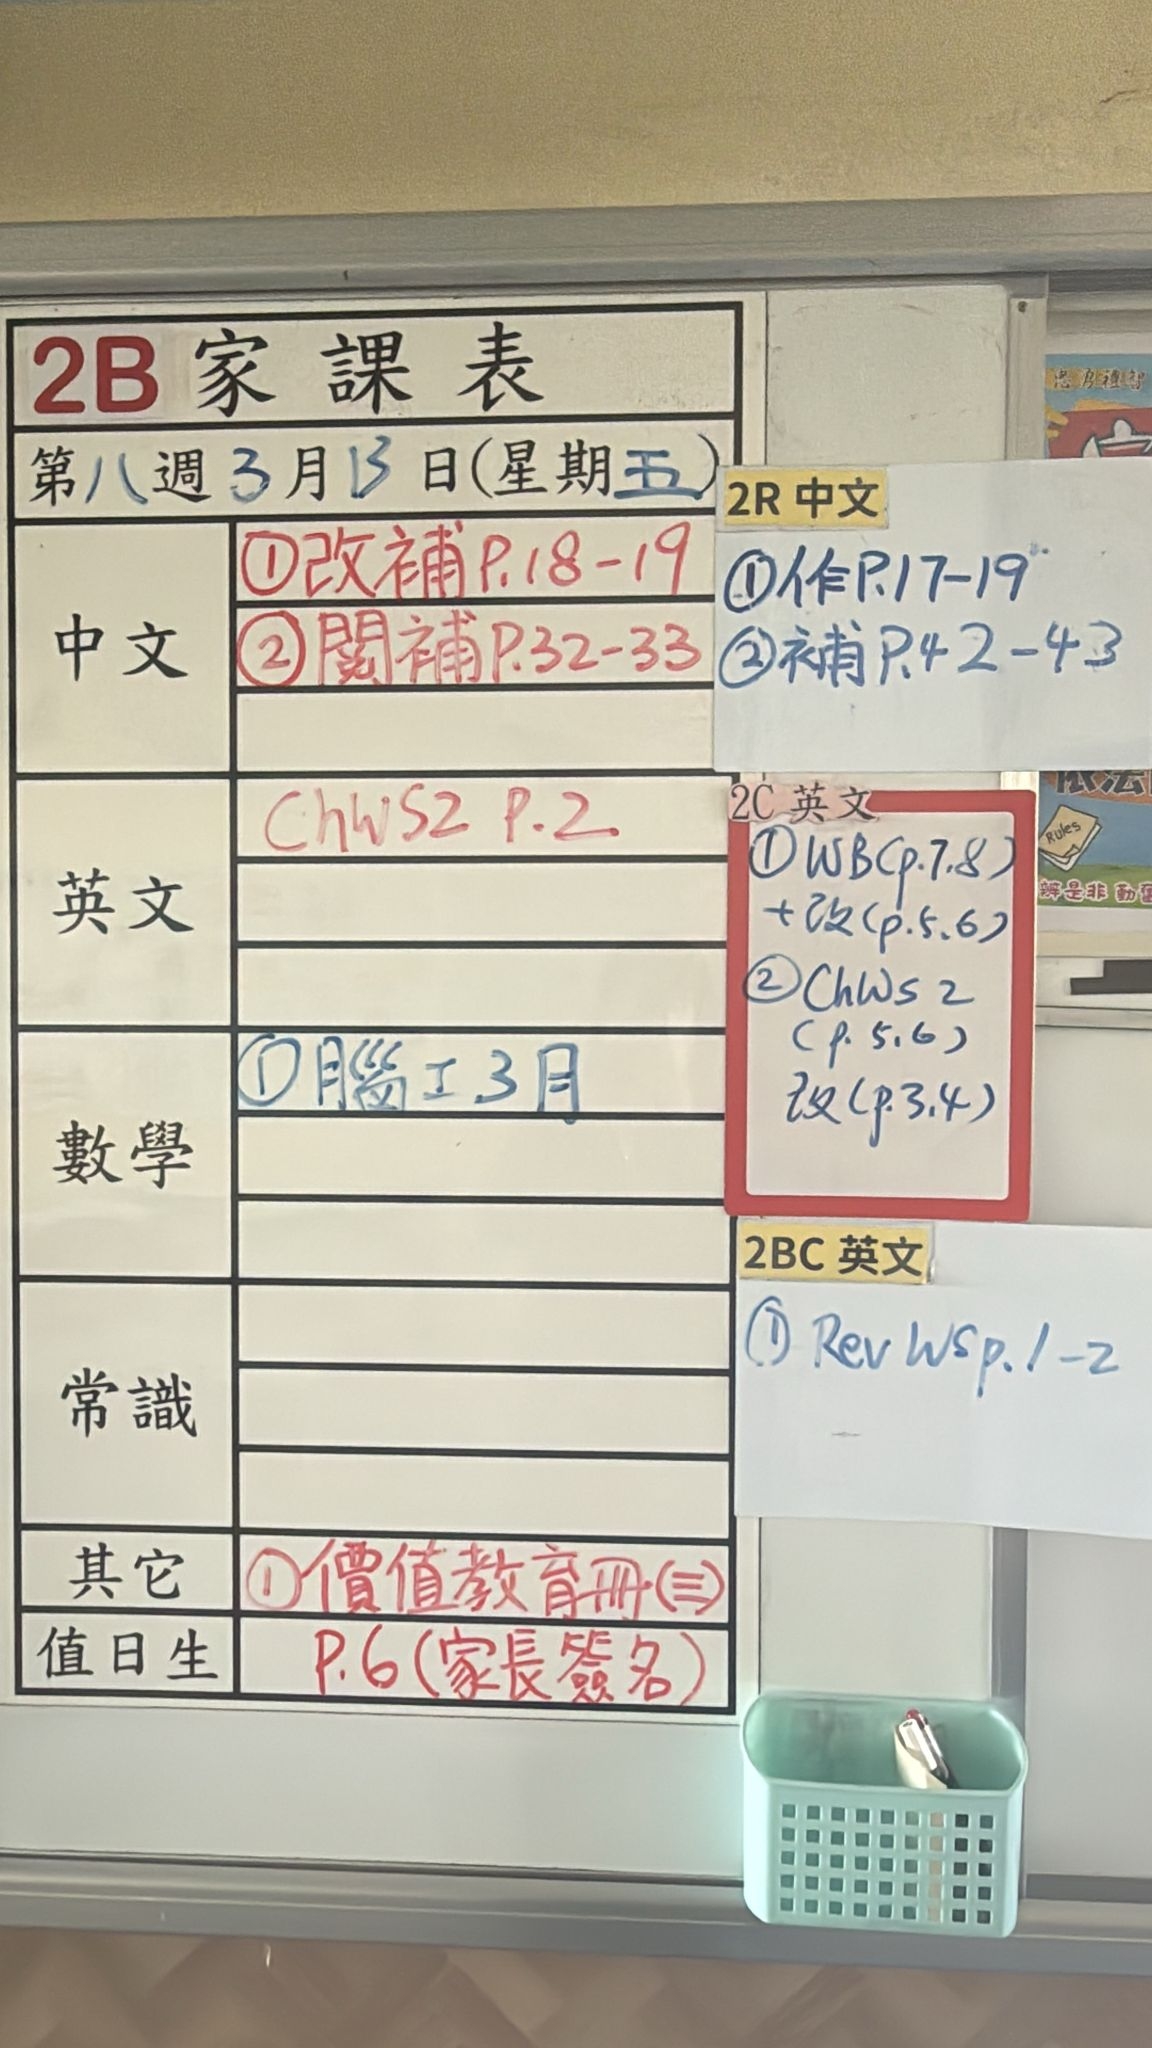 2B 家課表
第八週3月13日(星期五)
中文
①改補P.18-19
②閱補P.32-33
英文
ChWS2 P.2
數學
①腦工3月
常識
其它
①價值教育冊(三)
值日生
P.6(家長簽名)
2R 中文
①作P.17-19
②補P.42-43
2C 英文
①WB(p.7.8)
+改(p.5.6)
②ChWS 2
(p.5.6)
改(p.3.4)
2BC 英文
① Rev WS p.1-2
忠勇禮智
依法
Rules
辨是非 勤